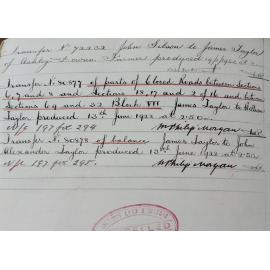 Transfer No 72232 John Tolson to James Taylor
of Ashby Farmer produced
Transfer No 80877 of parts of Closed Roads between Sections
6, 7 and 8 and Sections 18, 17 and 2 of 16 and between
Sections 69 and 32 Block VII James Taylor to
Taylor produced 13th June 1922 at 2.50
N/c 197 fol 294 W Philip Morgan
Transfer No 80878 of balance James Taylor to John
Alexander Taylor produced 13th June 1922 at 2.50
N/c 197 fol 295. W Philip Morgan